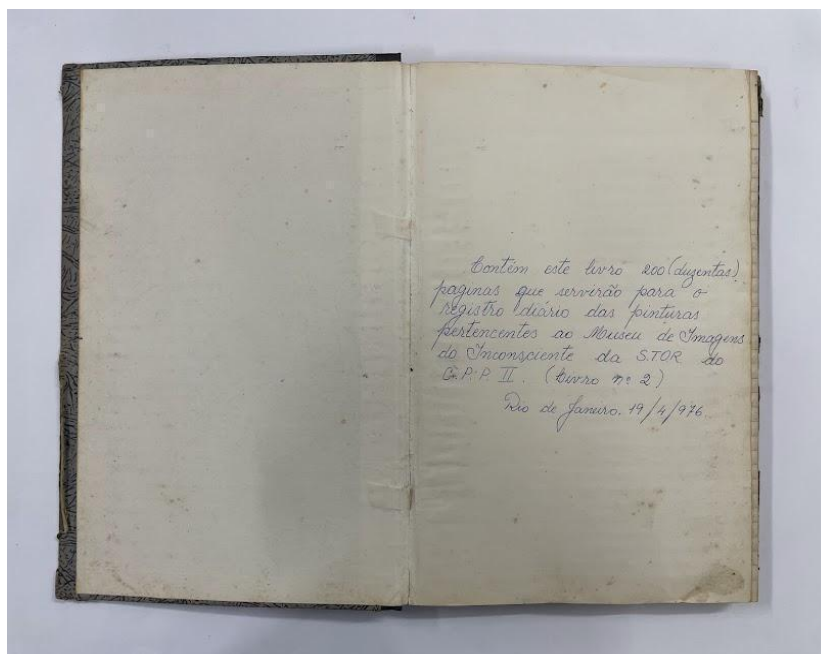 Contêm este livro 200 (duzentas)
paginas que servirão para o
registro diário das pinturas
pertencentes ao Museu de Imagens
do Inconsciente da S.TOR do
C.P.P. II. (Livro nº 2)
Rio de Janeiro. 19/4/976